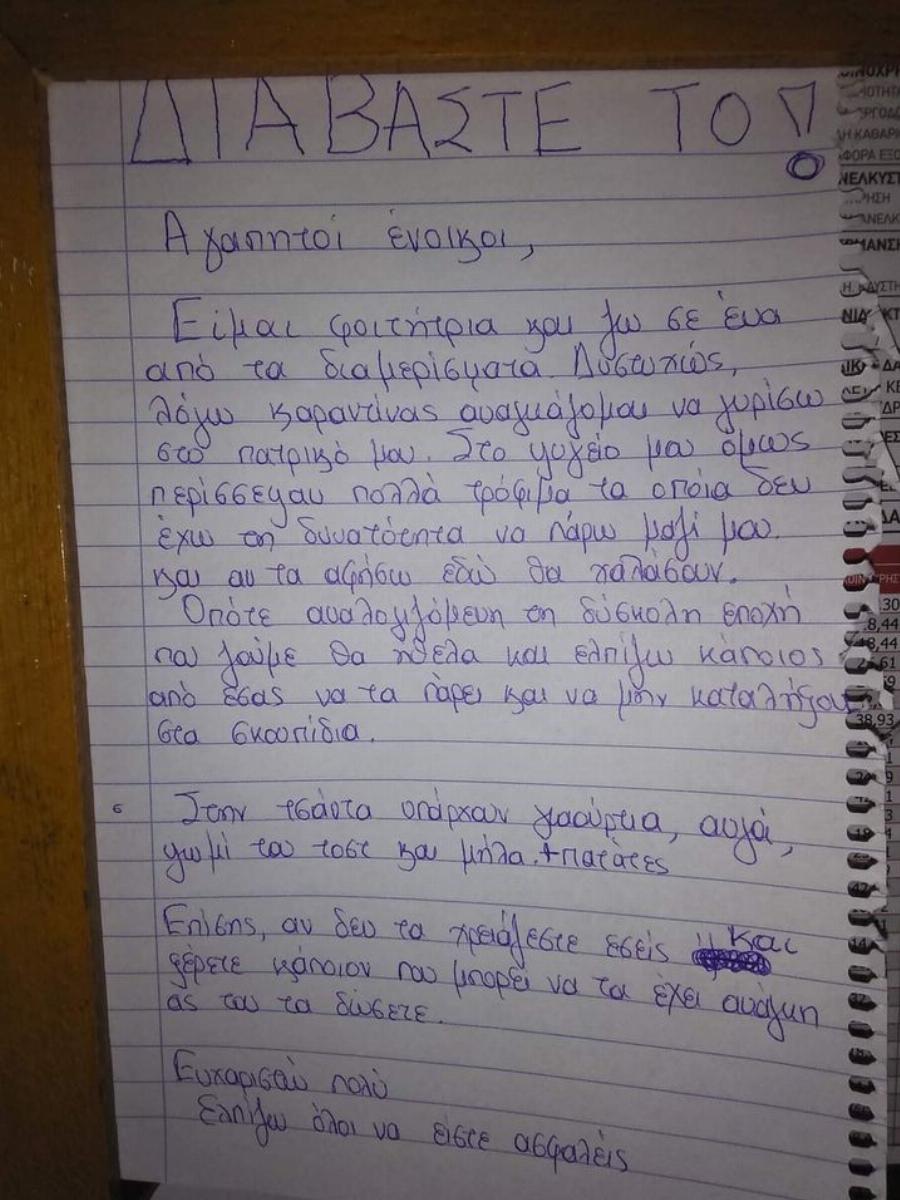 ΔΙΑΒΑΣΤΕ ΤΟ!
Αγαπητοί ένοικοι,
Είμαι φοιτήτρια και ζω σε ένα
από τα διαμερίσματα. Δυστυχώς,
λόγω καραντίνας αναγκάζομαι να γυρίσω
στο πατρικό μου. Στο ψυγείο μου όμως
περίσσεψαν πολλά τρόφιμα τα οποία δεν
έχω τη δυνατότητα να πάρω μαζί μου
και αν τα αφήσω εδώ θα χαλάσουν.
Οπότε αναλογιζόμενη τη δύσκολη εποχή
που ζούμε θα ήθελα και ελπίζω κάποιος
από εσάς να τα πάρει και να μην καταλήξουν
στα σκουπίδια.
Στην τσάντα υπάρχουν γιαούρτια, αυγά,
ψωμί του τοστ και μήλα. + πατάτες
Επίσης, αν δεν τα χρειάζεστε εσείς και
ξέρετε κάποιον που μπορεί να τα έχει ανάγκη
ας του τα δώσετε.
Ευχαριστώ πολύ
Ελπίζω όλοι να είστε ασφαλείς
8,44
38,93